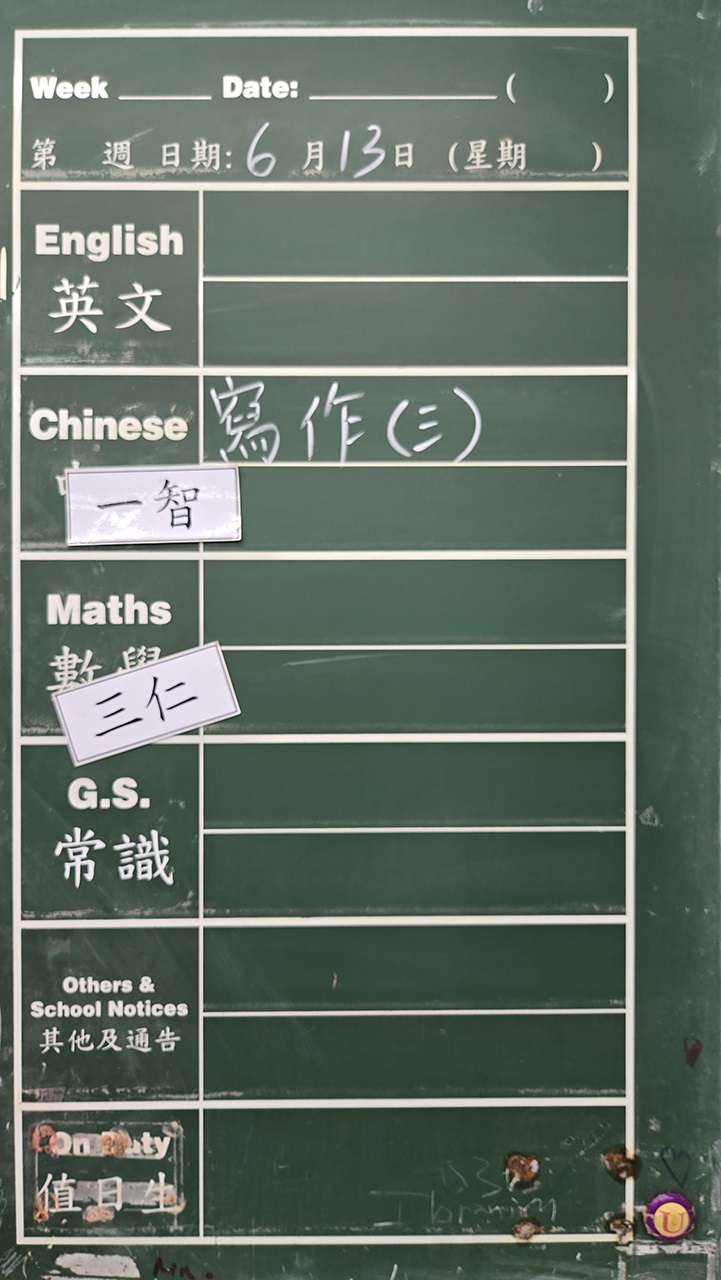 Week ______ Date: ____________ (        )
第    週 日期: 6 月 13 日 (星期        )
English
英文
Chinese 寫作(三)
一智
Maths
數學
三仁
G.S.
常識
Others &
School Notices
其他及通告
On Duty
值日生
U